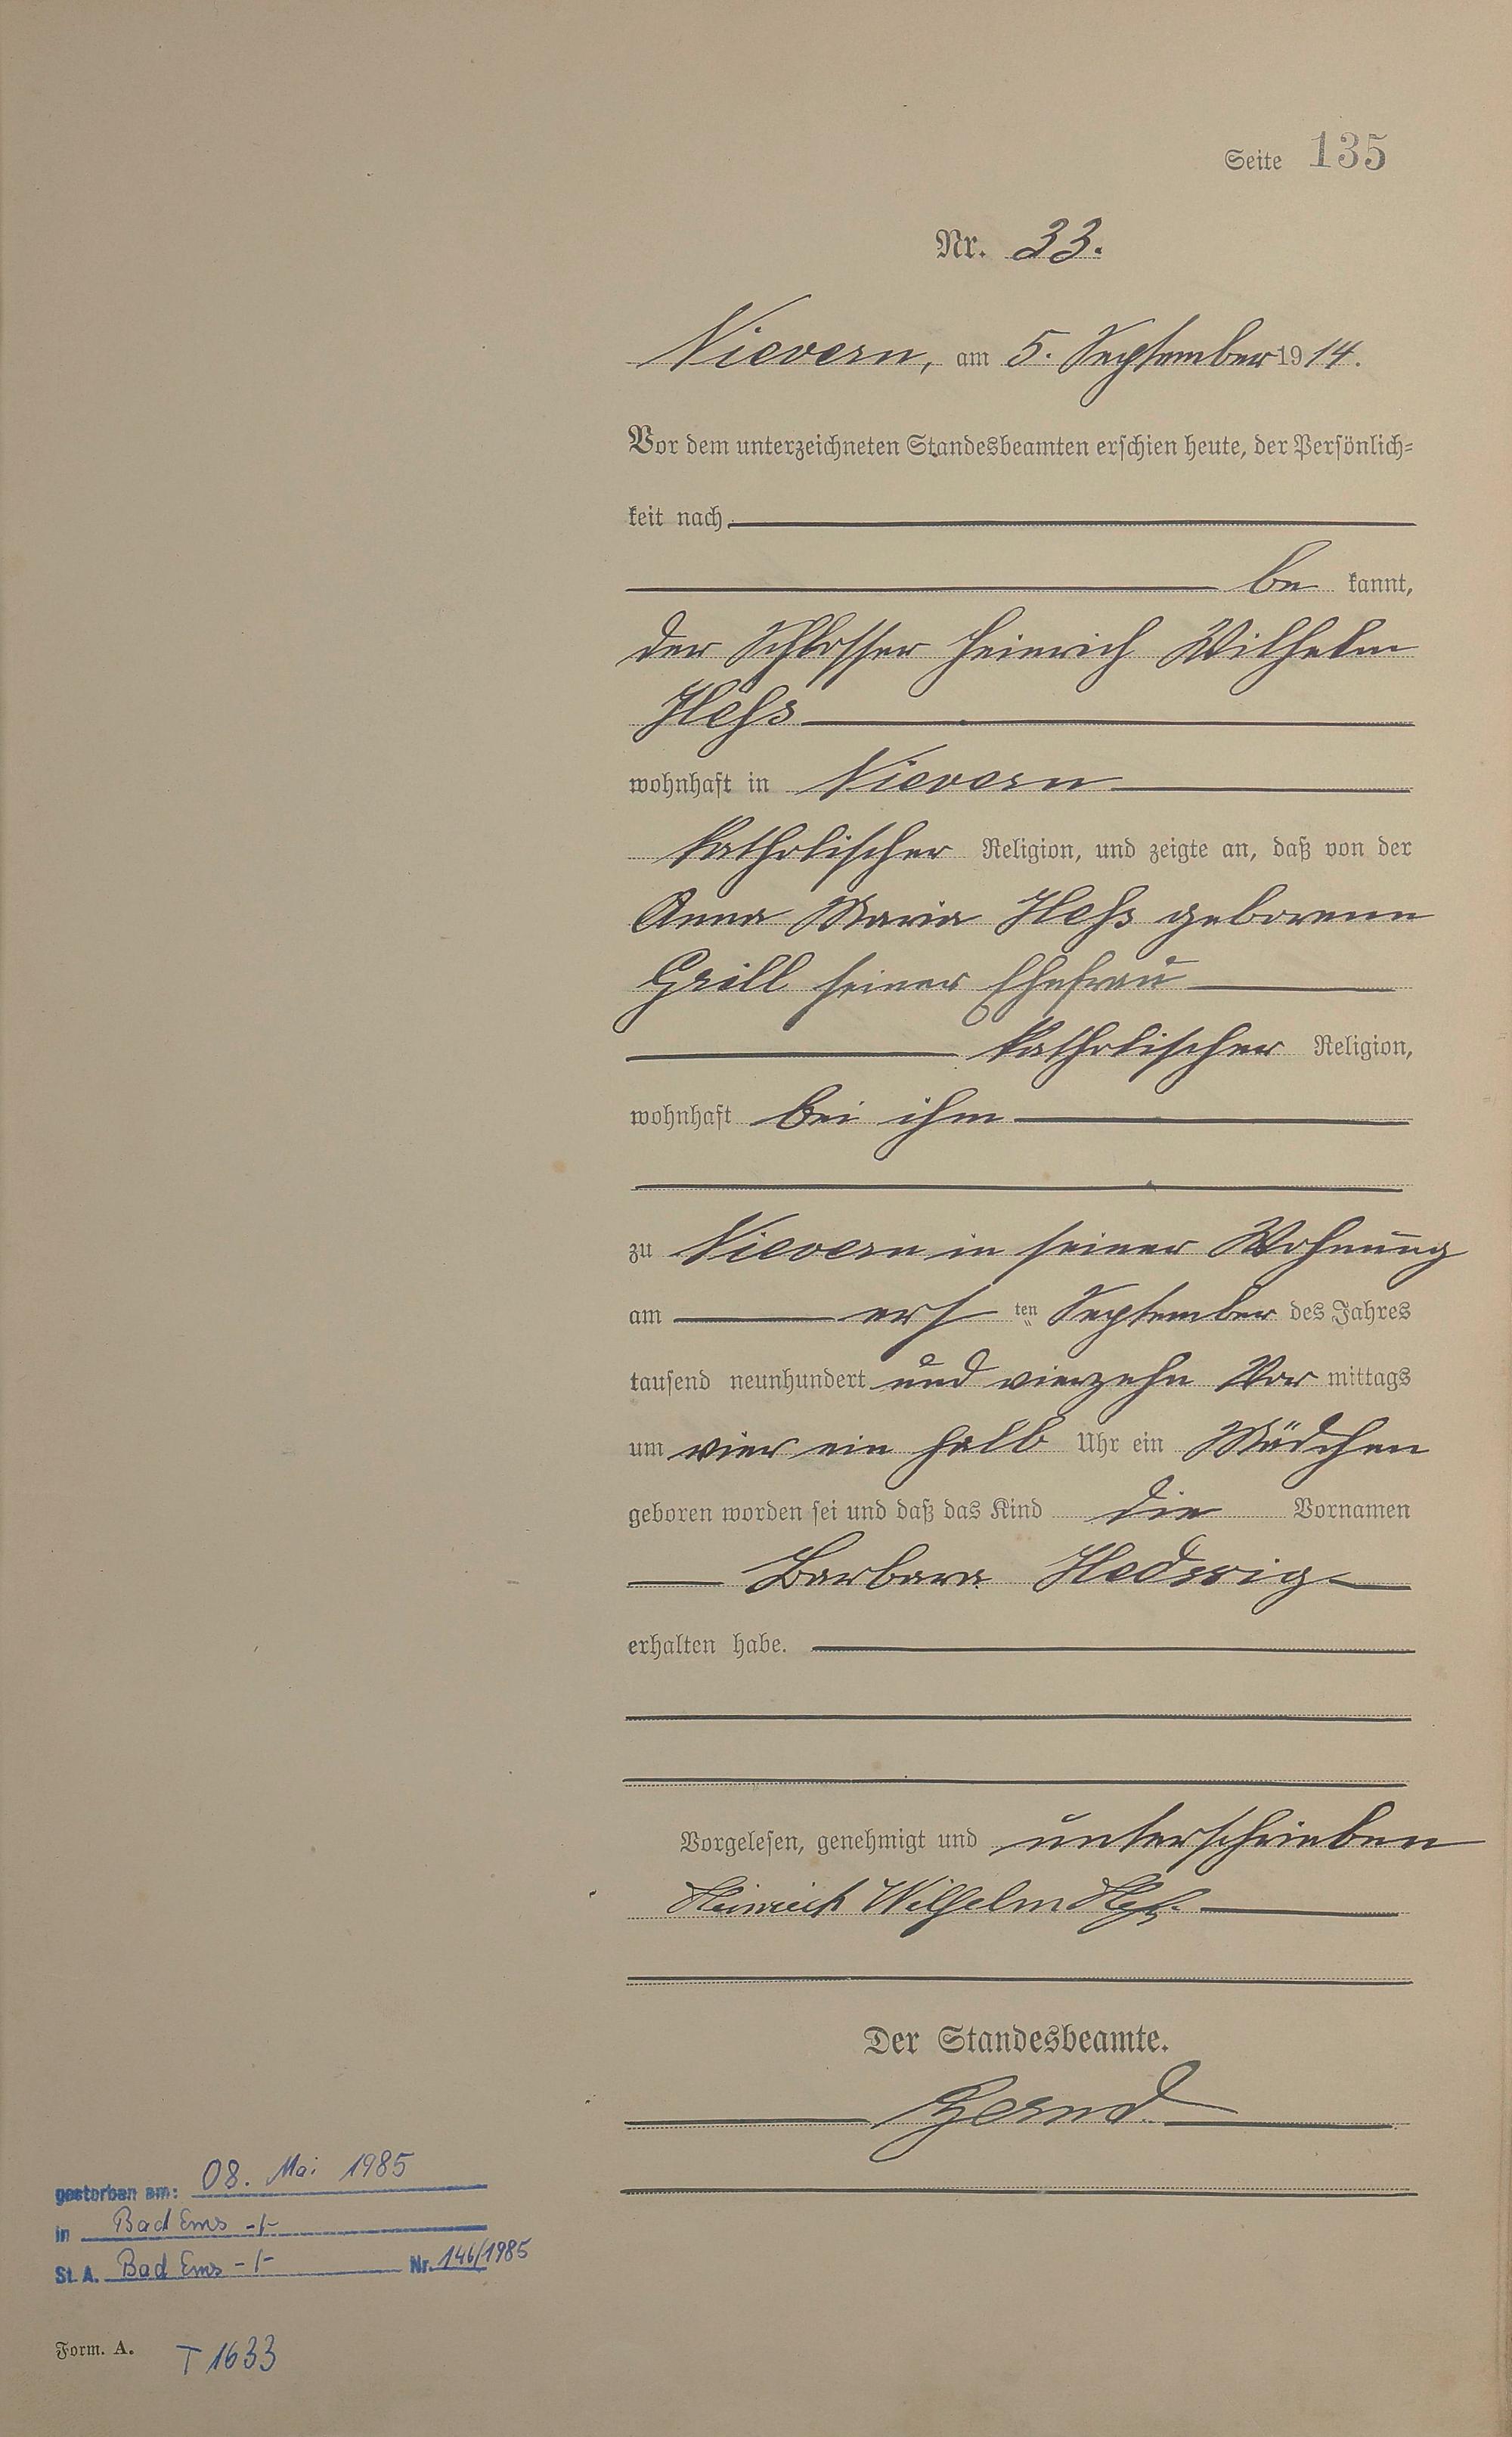 Seite 135
Nr. 33.
Nievern, am 5. September 1914.
Vor dem unterzeichneten Standesbeamten erschien heute, der Persönlich-
keit nach
be kannt,
der Schlosser Heinrich Wilhelm
Heß
wohnhaft in Nievern
katholischer Religion, und zeigte an, daß von der
Anna Maria Heß geborenen
Grill seiner Ehefrau
katholischer Religion,
wohnhaft bei ihm
zu Nievern in seiner Wohnung
am ersten September des Jahres
tausend neunhundert und vierzehn Vor mittags
um vier ein halb Uhr ein Mädchen
geboren worden sei und daß das Kind die Vornamen
Barbara Hedwig
erhalten habe.
Vorgelesen, genehmigt und unterschrieben
Heinrich Wilhelm Heß.
Der Standesbeamte.
gestorben am: 08. Mai 1985
in Bad Ems -/-
St. A. Bad Ems -/- Nr. 146/1985
Form. A. T 1633